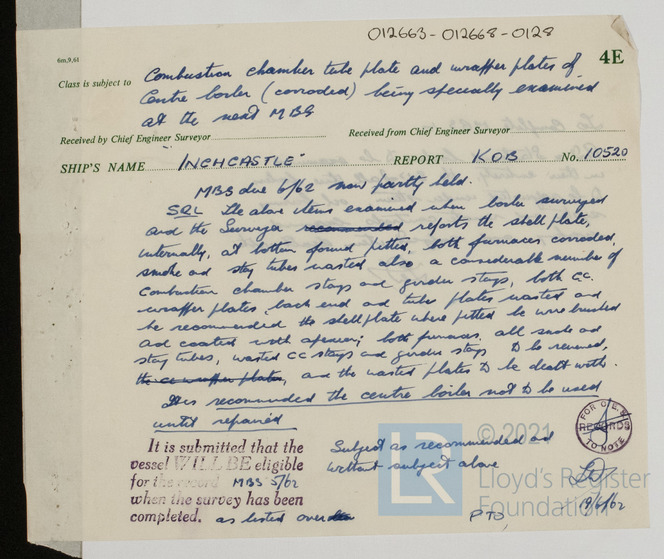 012663-012668-0128
6m,9,61
4E
Class is subject to Combustion chamber tube plate and wrapper plates of
Centre boiler (corroded) being specially examined
at the next MBS
Received by Chief Engineer Surveyor Received from Chief Engineer Surveyor
SHIP'S NAME "INCHCASTLE" REPORT KOB No. 10520
MBS due 6/62 now partly held.
SRL The above items examined when boiler surveyed
and the Surveyor recommended reports the shell plate,
internally, at bottom found pitted, both furnaces corroded,
smoke and stay tubes wasted also a considerable number of
combustion chamber stays and girder stays, both CC.
wrapper plates, back end and tube plates wasted and
he recommended the shell plate where pitted be wire brushed
and coated with apexior; both furnaces, all smoke and
stay tubes, wasted CC stays and girder stays to be renewed,
the cc wrapper plates, and the wasted plates to be dealt with.
It is recommended the centre boiler not to be used
until repaired
It is submitted that the
vessel WILL BE eligible
for the record MBS 5/62
when the survey has been
completed. as listed over
Subject as recommended and
without subject above
PTO
FOR C.E.S.
RECORDS
TO NOTE
19/6/62
© 2021
LR
Lloyd's Register
Foundation